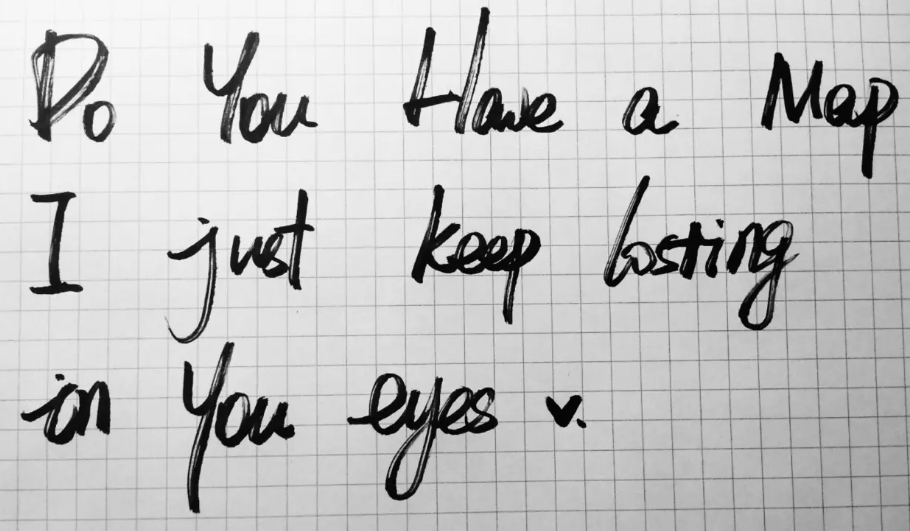 Do You Have a Map
I just keep losting
in You eyes ♥.